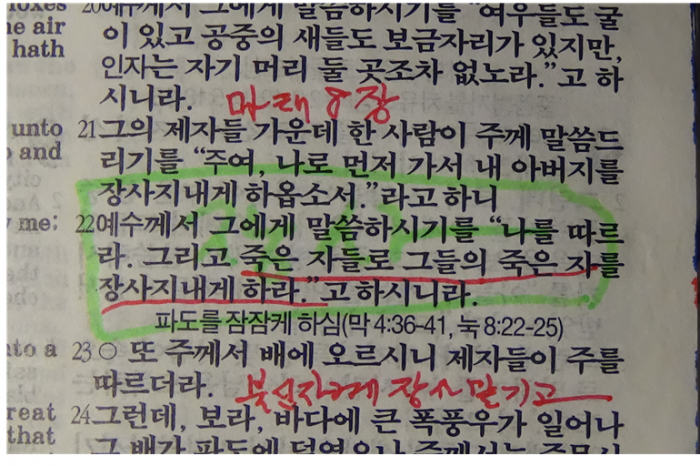 oxes
20예수께서 그에게 말씀하시기를 "여우들도 굴
he air
이 있고 공중의 새들도 보금자리가 있지만,
hath
인자는 자기 머리 둘 곳조차 없노라."고 하
시니라. 마태 8장
unto
21그의 제자들 가운데 한 사람이 주께 말씀드
and
리기를 "주여, 나로 먼저 가서 내 아버지를
장사지내게 하옵소서."라고 하니
me:
22예수께서 그에게 말씀하시기를 "나를 따르
라. 그리고 죽은 자들로 그들의 죽은 자를
장사지내게 하라."고 하시니라.
파도를 잠잠케 하심(막 4:36-41, 눅 8:22-25)
to a
23○ 또 주께서 배에 오르시니 제자들이 주를
따르더라. 불신자에게 장사 맡기고
reat
24그런데, 보라, 바다에 큰 폭풍우가 일어나
that
그 배가 파도에 덮였으나 주께서는